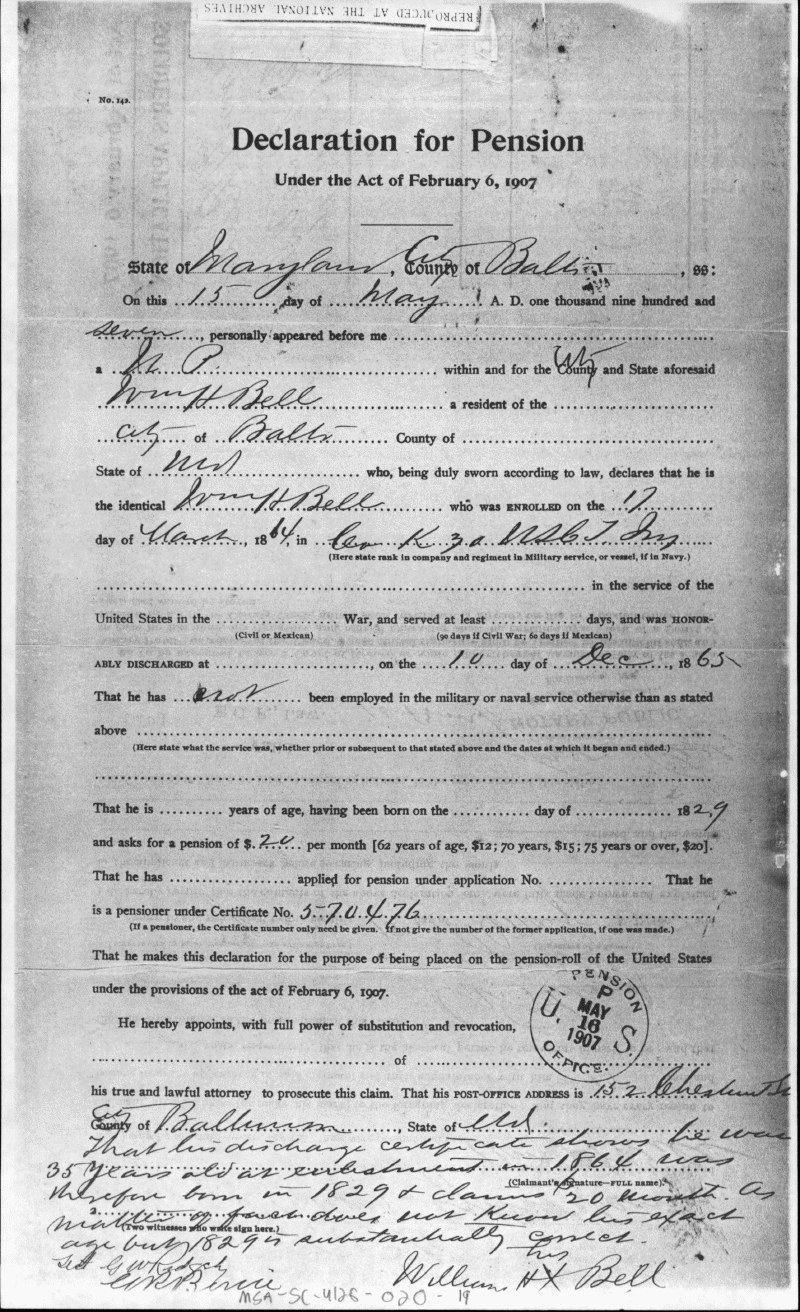 REPRODUCED AT THE NATIONAL ARCHIVES
No. 142.
Declaration for Pension
Under the Act of February 6, 1907
State of Maryland, City County of Balto, ss:
On this 15 day of May A. D. one thousand nine hundred and
seven, personally appeared before me
a N. P. within and for the City County and State aforesaid
Wm H Bell a resident of the
City of Balto County of
State of Md who, being duly sworn according to law, declares that he is
the identical Wm H Bell who was ENROLLED on the 17
day of March, 1864, in Co K 30 USCT Inf
(Here state rank in company and regiment in Military service, or vessel, if in Navy.)
in the service of the
United States in the War, and served at least days, and was HONOR-
(Civil or Mexican) (90 days if Civil War; 60 days if Mexican)
ABLY DISCHARGED at , on the 10 day of Dec, 1865
That he has not been employed in the military or naval service otherwise than as stated
above
(Here state what the service was, whether prior or subsequent to that stated above and the dates at which it began and ended.)
That he is years of age, having been born on the day of 1829
and asks for a pension of $ 20 per month [62 years of age, $12; 70 years, $15; 75 years or over, $20].
That he has applied for pension under application No. That he
is a pensioner under Certificate No. 570476
(If a pensioner, the Certificate number only need be given. If not give the number of the former application, if one was made.)
That he makes this declaration for the purpose of being placed on the pension-roll of the United States
under the provisions of the act of February 6, 1907.
U. S. PENSION OFFICE.
P
MAY
16
1907
He hereby appoints, with full power of substitution and revocation,
of
his true and lawful attorney to prosecute this claim. That his POST-OFFICE ADDRESS is 152 Chestnut St
City County of Baltimore, State of Md.
That his discharge certificate shows he was
35 years old at enlistment in 1864 was
(Claimant's signature—FULL name).
therefore born in 1829 & claims 20 month. As
2.
matter of fact does not know his exact
(Two witnesses who write sign here.)
age but 1829 is substantially correct.
his
William H X Bell
MSA-SC-4126-020-19